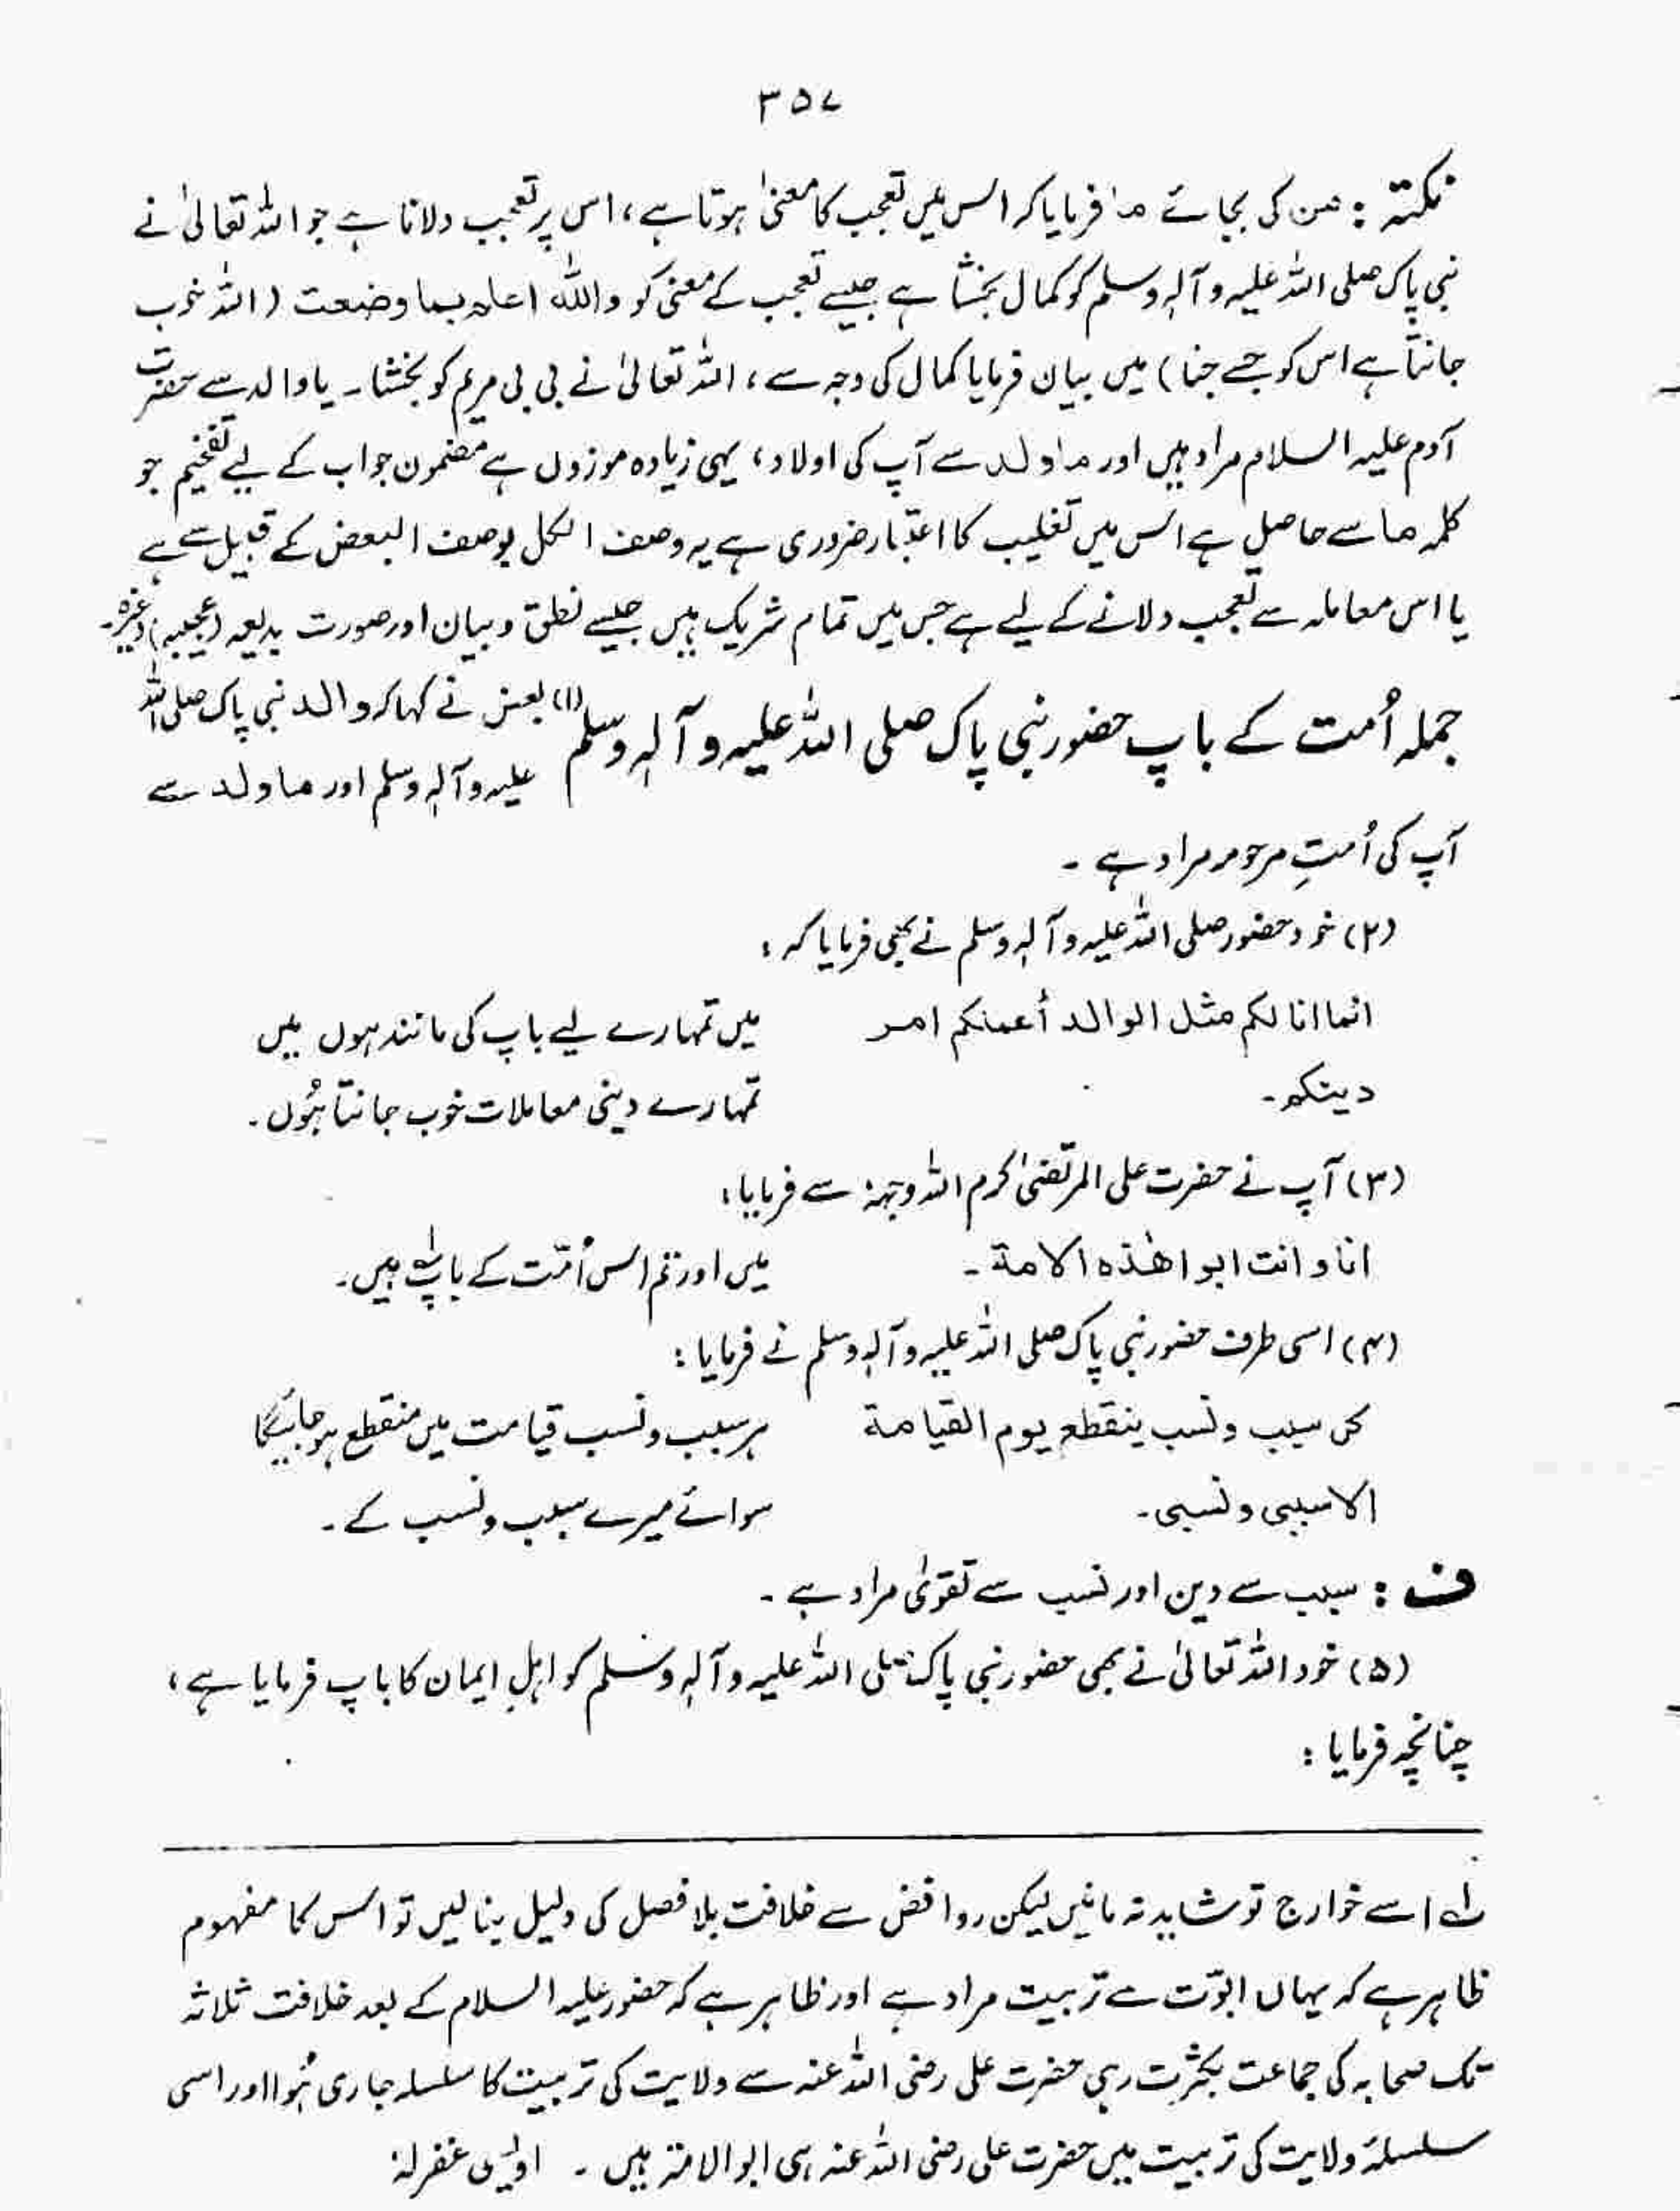 ۳۵۷
نکتہ : من کی بجائے ما فرمایا کہ اس میں تعجب کا معنیٰ ہوتا ہے ، اس پر تعجب دلانا ہے جو اللہ تعالیٰ نے
نبی پاک صلی اللہ علیہ وآلہ وسلم کو کمال بخشا ہے جیسے تعجب کے معنیٰ کو واللہ اعلم بما وضعت ( اللہ خوب
جانتا ہے اس کو جسے جنا ) میں بیان فرمایا کمال کی وجہ سے ، اللہ تعالیٰ نے بی بی مریم کو بخشا ۔ یا والد سے حضرت
آدم علیہ السلام مراد ہیں اور ما ولد سے آپ کی اولاد ، یہی زیادہ موزوں ہے مضمون جواب کے لیے تفخیم جو
کلمہ ما سے حاصل ہے اس میں تغلیب کا اعتبار ضروری ہے یہ وصف الکل بوصف البعض کے قبیل سے ہے
یا اس معاملہ سے تعجب دلانے کے لیے ہے جس میں تمام شریک ہیں جیسے نطق و بیان اور صورت بدیعہ (عجیبہ) وغیرہ ۔
جملہ اُمت کے باپ حضور نبی پاک صلی اللہ علیہ وآلہ وسلم
(۱) بعض نے کہا کہ والد نبی پاک صلی اللہ
علیہ وآلہ وسلم اور ما ولد سے
آپ کی اُمتِ مرحومہ مراد ہے ۔
(۲) خود حضور صلی اللہ علیہ وآلہ وسلم نے بھی فرمایا کہ :
انما انا لکم مثل الوالد أعلمکم امر
دینکم ۔
میں تمہارے لیے باپ کی مانند ہوں میں
تمہارے دینی معاملات خوب جانتا ہُوں ۔
(۳) آپ نے حضرت علی المرتضیٰ کرم اللہ وجہہٗ سے فرمایا :
انا و انت ابوا ھٰذہ الامة ۔
میں اور تم اس اُمّت کے باپ لہ ہیں ۔
(۴) اسی طرف حضور نبی پاک صلی اللہ علیہ وآلہ وسلم نے فرمایا :
کل سبب و نسب ینقطع یوم القیامة
الا سببی و نسبی ۔
ہر سبب و نسب قیامت میں منقطع ہو جائیگا
سوائے میرے سبب و نسب کے ۔
ف : سبب سے دین اور نسب سے تقویٰ مراد ہے ۔
(۵) خود اللہ تعالیٰ نے بھی حضور نبی پاک صلی اللہ علیہ وآلہ وسلم کو اہلِ ایمان کا باپ فرمایا ہے ،
چنانچہ فرمایا :
لہ اسے خوارج تو شاید نہ مانیں لیکن روافض سے خلافت بلا فصل کی دلیل بنا لیں تو اس کا مفہوم
ظاہر ہے کہ یہاں ابوّت سے تربیت مراد ہے اور ظاہر ہے کہ حضور علیہ السلام کے بعد خلافت ثلاثہ
تک صحابہ کی جماعت بکثرت رہی حضرت علی رضی اللہ عنہ سے ولایت کی تربیت کا سلسلہ جاری ہُوا اور اسی
سلسلۂ ولایت کی تربیت میں حضرت علی رضی اللہ عنہ ہی ابوالامۃ ہیں ۔ اویسی غفرلہٗ